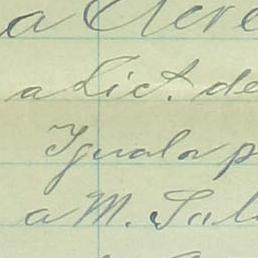 a Acre
a Lict. de
Iguala p
a M. Sal